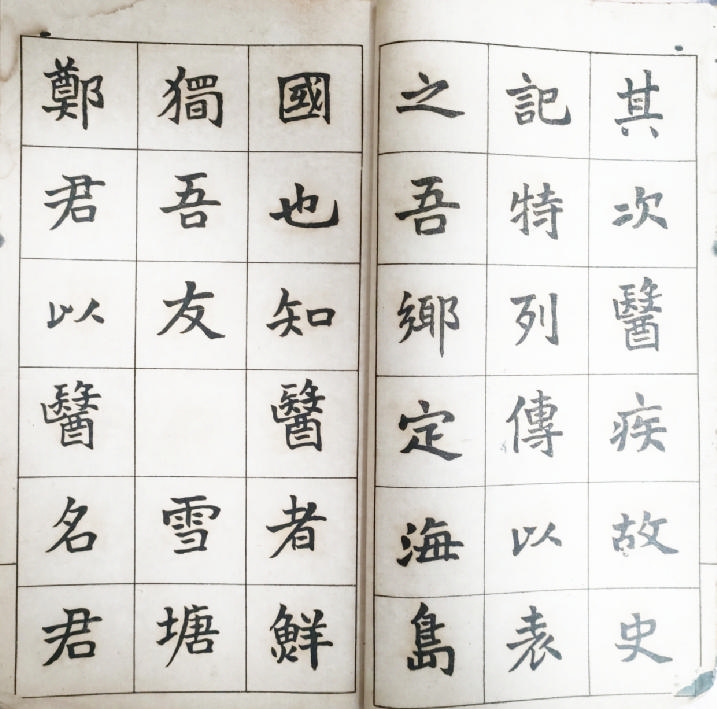 其次醫疾故史
記特列傳以表
之吾鄉定海島
國也知醫者鮮
獨吾友雪塘
鄭君以醫名君